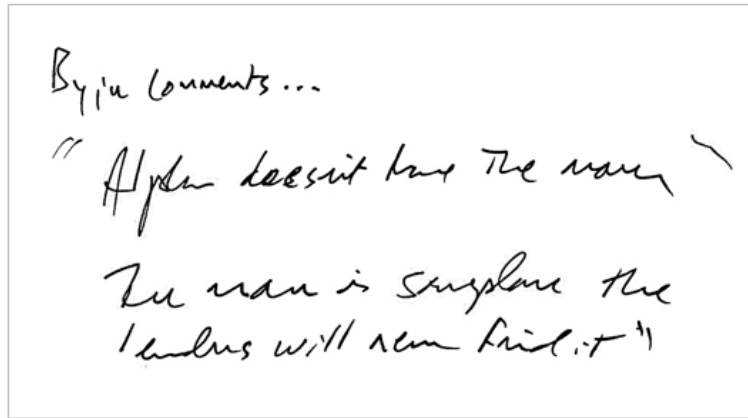 Byju comments...
"Alpha doesn't have the money"
The money is someplace the
lenders will never find it"